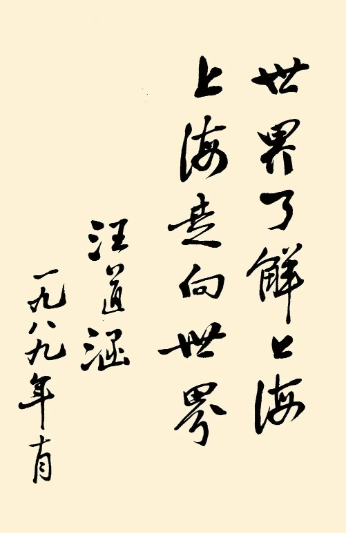 世界了解上海
上海走向世界
汪道涵
一九八九年十月